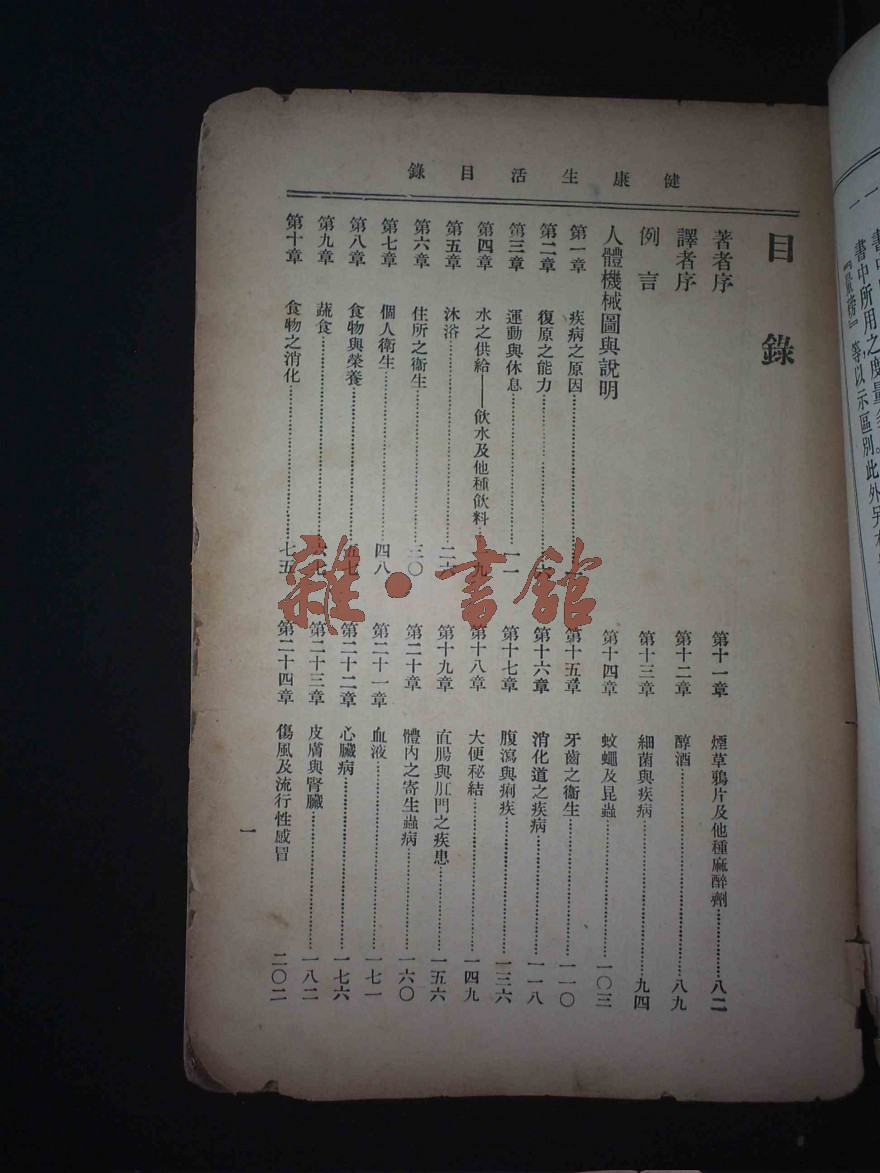 健康生活目錄
目錄
著者序
譯者序
例言
人體機械圖與說明
第一章 疾病之原因
第二章 復原之能力
第三章 運動與休息 一一
第四章 水之供給——飲水及他種飲料
第五章 沐浴
第六章 住所之衞生 三〇
第七章 個人衞生 四八
第八章 食物與榮養 五七
第九章 蔬食 六七
第十章 食物之消化 七五
第十一章 煙草鴉片及他種麻醉劑 八二
第十二章 醇酒 八九
第十三章 細菌與疾病 九四
第十四章 蚊蠅及昆蟲 一〇三
第十五章 牙齒之衞生 一一〇
第十六章 消化道之疾病 一一八
第十七章 腹瀉與痢疾 一三六
第十八章 大便秘結 一四九
第十九章 直腸與肛門之疾患 一五六
第二十章 體內之寄生蟲病 一六〇
第二十一章 血液 一七一
第二十二章 心臟病 一七六
第二十三章 皮膚與腎臟 一八二
第二十四章 傷風及流行性感冒 二〇二
一
雜·書館
書中所用之度量
等，以示區別。此外另